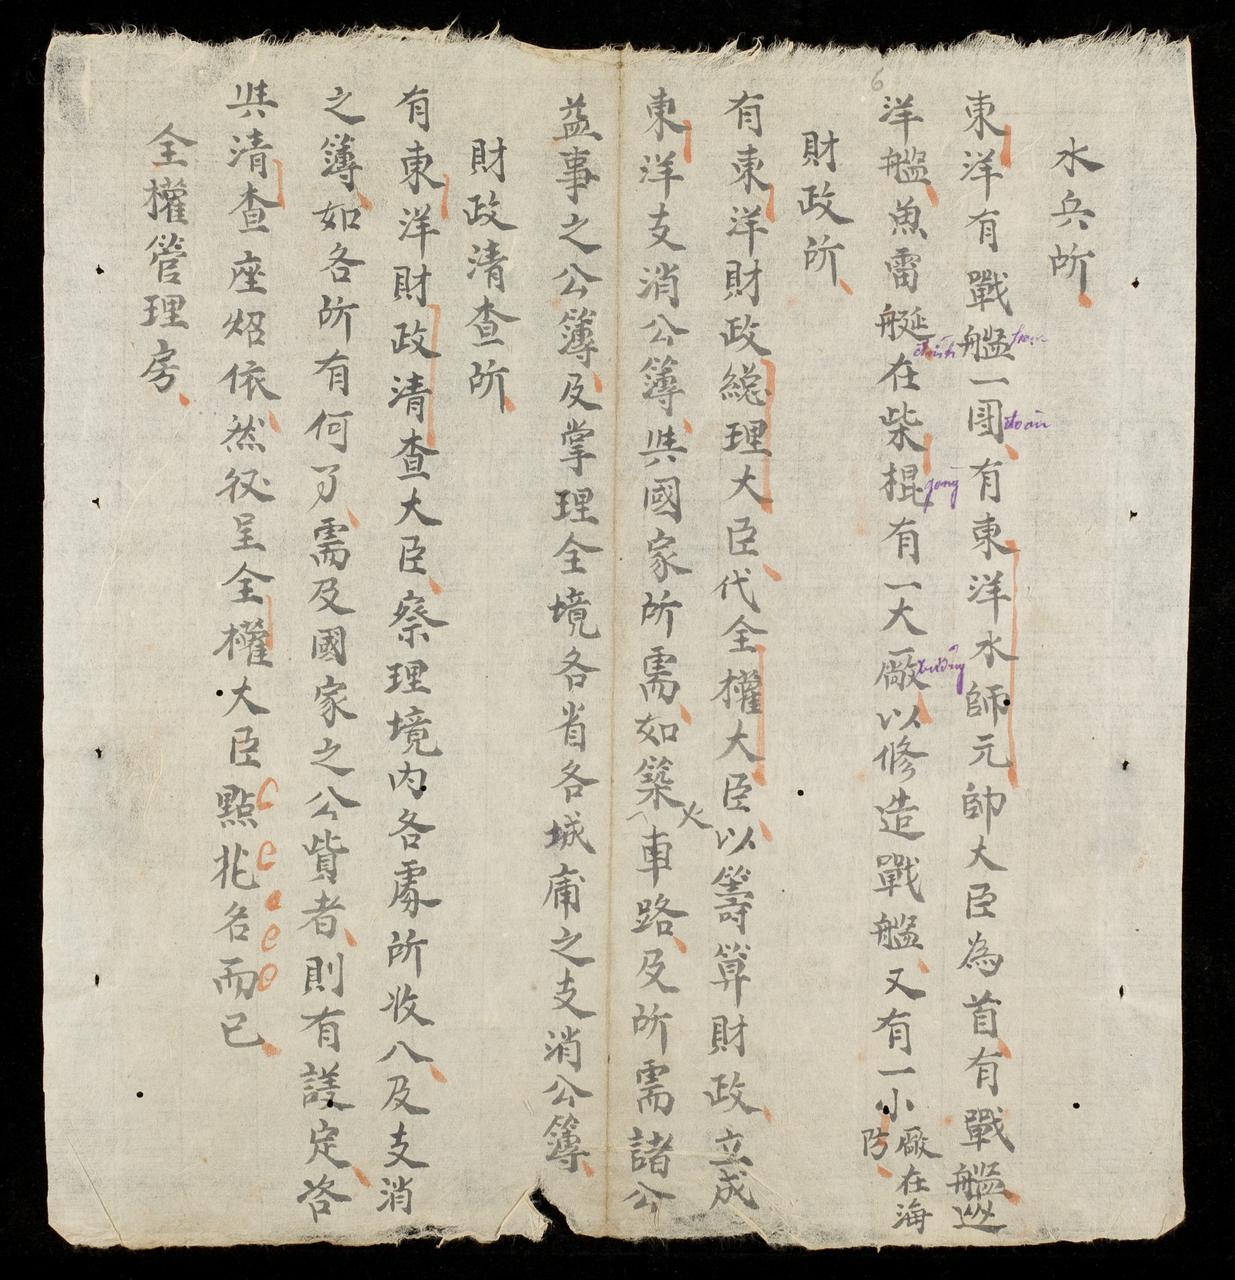 水兵所
東洋有戰艦一團有東洋水師元帥大臣為首有戰艦巡
洋艦魚雷艇在柴棍有一大廠以修造戰艦又有一小廠在海防
財政所
有東洋財政總理大臣代全權大臣以籌算財政立成
東洋支消公簿與國家所需如築火車路及所需諸公
益事之公簿及掌理全境各省各城庯之支消公簿
財政清查所
有東洋財政清查大臣察理境内各處所收入及支消
之簿如各所有何了需及國家之公費者則有議定咨
與清查座炤依然後呈全權大臣點批名而已
全權管理房
6
tram
đoàn
đính
gong
xưởng